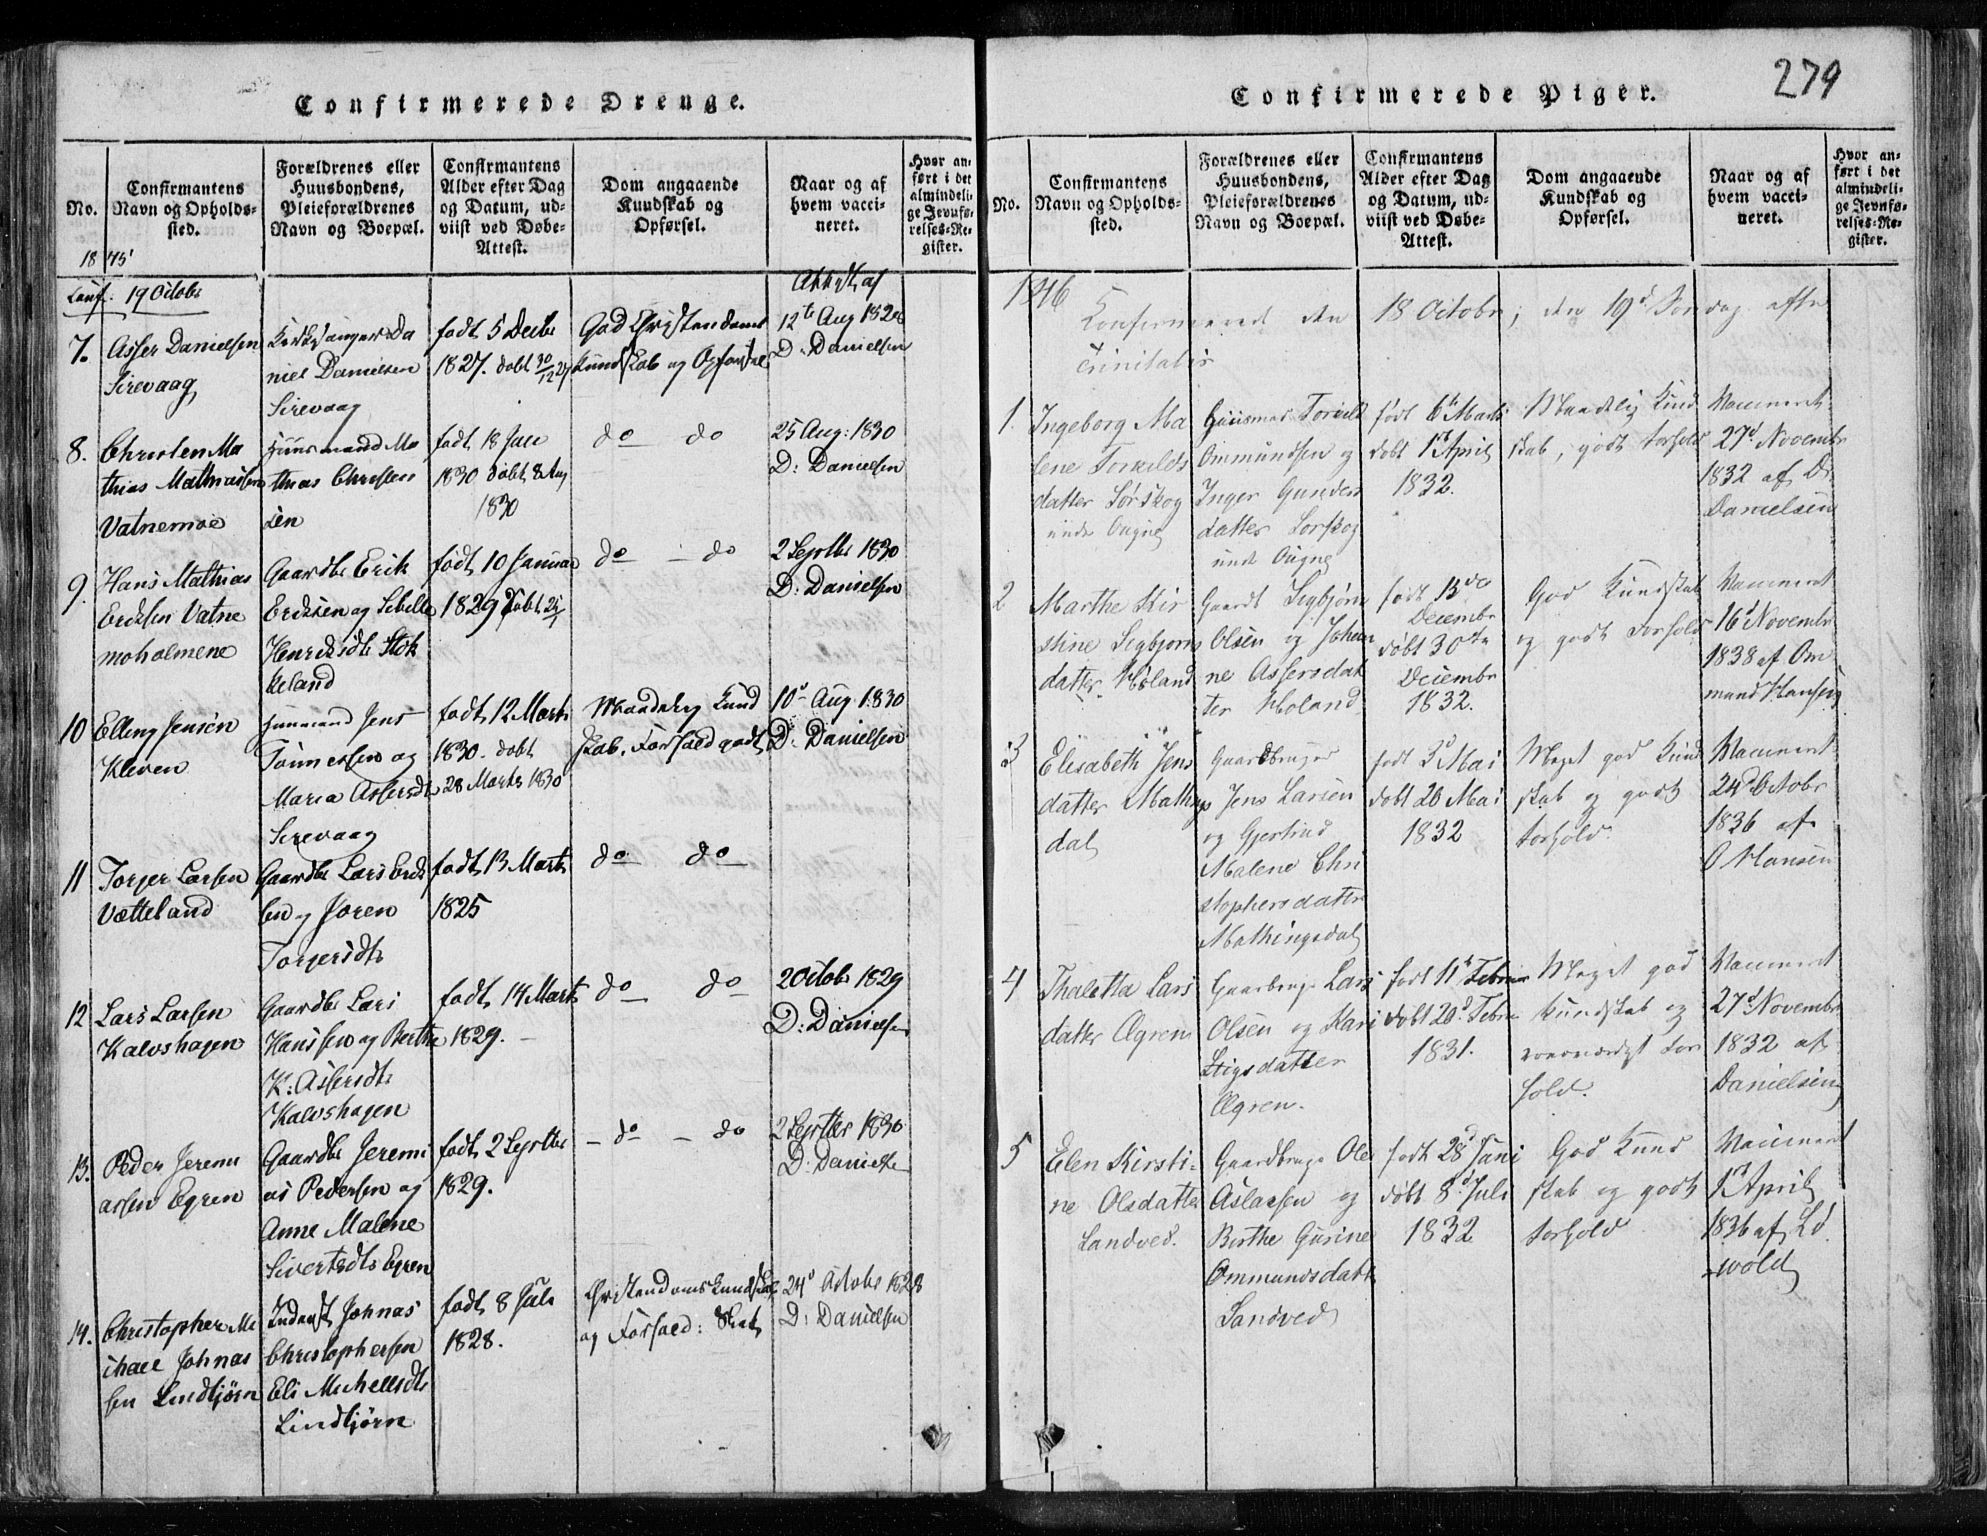 Confirmerede Drenge.
No.
Confirmantens
Navn og Opholds-
sted.
Forældrenes eller
Huusbondens,
Pleieforældrenes
Navn og Boepæl.
Confirmantens
Alder efter Dag
og Datum, ud-
viist ved Døbe-
Attest.
Dom angaaende
Kundskab og
Opførsel.
Naar og af
hvem vacci-
neret.
Hvor an-
ført i det
almindeli-
ge Jevnfø-
relses-Re-
gister.
1845
Conf. 19 Octobr
7.
Asser Danielsen
Sirevaag
Kirkesanger Da
niel Danielsen
Sirevaag
født 5 Decbr
1827. døbt 30/12 27
God Christendoms
Kundskab og Opførsel
Attest af
12te Aug 1828
D. Danielsen
8.
Christen Ma
thias Mathiassen
Vatnemoe
Huusmand Ma
thias Christen
sen
født 18 Juli
1830 døbt 8 Aug
1830
do do
25 Aug: 1830
D: Danielsen
9.
Hans Mathias
Eriksen Vatne
moholmene
Gaardbr Erik
Eriksen og Sibille
Henriksdtr Stok
keland
født 10 Januar
1829 døbt 25/1
do - do
2 Septbr 1830
D: Danielsen
10
Elling Jensen
Kleven
Huusmand Jens
Tønnessen og
Maria Assersdtr
Sirevaag
født 12 Marts
1830. døbt
28 Marts 1830
Maadelig Kund
skab. Forhold godt
10d Aug 1830
D: Danielsen
11
Torger Larsen
Vætteland
Gaardbr Lars Erik
sen og Joren
Torgersdtr
født 13 Marts
1825
do do
12
Lars Larsen
Kalvshagen
Gaardbr Lars
Hanssen og Berthe
K: Assersdtr
Kalvshagen
født 14 Marts
1829.
do do
2 Octob 1829
D: Danielsen
13.
Peder Jeremi
assen Egren
Gaardbr Jeremi
as Pedersen og
Anne Malene
Sivertsdtr Egren
født 2 Septbr
1829.
- do - do
2 Septbr 1830
D: Danielsen
14.
Christopher Mi
chael Johnas
sen Lindtjørn
Inderst Johnas
Christophersen
Eli Michelsdtr
Lindtjørn
født 8 Juli
1828.
Christendoms Kundskab
og Forhold: Slet
24d Octobr 1828
D: Danielsen
279
Confirmerede Piger.
No.
Confirmantens
Navn og Opholds-
sted.
Forældrenes eller
Huusbondens,
Pleieforældrenes
Navn og Boepæl.
Confirmantens
Alder efter Dag
og Datum, ud-
viist ved Døbe-
Attest.
Dom angaaende
Kundskab og
Opførsel.
Naar og af
hvem vacci-
neret.
Hvor an-
ført i det
almindeli-
ge Jevnfø-
relses-Re-
gister.
1846
Konfirmeret den 18 Octobr, den 19d Søndag efter
Trinitatis
1.
Ingeborg Ma
lene Torkilds
datter Sørskog
under Ougne
Huusmand Torkild
Ommundsen og
Inger Gunders
datter Sørskog
under Ougne
født 6te Marts
døbt 1st April
1832.
Maadelig Kund
skab, godt Forhold
Vaccineret
27d Novembr
1832 af D.
Danielsen
2
Marthe Kir
stine Sigbjørns
datter Høland
Gaardb Sigbjørn
Olsen og Johan
ne Assersdat
ter Høland
født 13de
Decembr
døbt 30te
Decembr
1832.
God Kundskab
og godt Forhold
Vaccineret
16d Novembr
1838 af Om
mund Hansen
3
Elisabeth Jens
datter Mathings
dal
Gaardbruger
Jens Larsen
og Gjertrud
Malene Chri
stophersdatter
Mathingsdal
født 3d Mai
døbt 20 Mai
1832
Meget god Kund
skab og godt
Forhold
Vaccineret
24d Octobr
1836 af
O Hansen
4
Thaletta Lars
datter Ægren
Gaardbruger Lars
Olsen og Kari
Stigsdatter
Ægren.
født 11t Februar
døbt 20d Febru
1831.
Meget god
Kundskab og
roesværdigt For
hold.
Vaccineret
27d Novembr
1832 af
Danielsen
5
Elen Kirsti-
ne Olsdatter
Sandved.
Gaardbruger Ole
Aslaksen og
Berthe Gurine
Ommundsdatter
Sandved
født 28d Juni
døbt 8d Juli
1832
God Kund
skab og godt
Forhold
Vaccineret
1st April
1836 af Ld.
wold